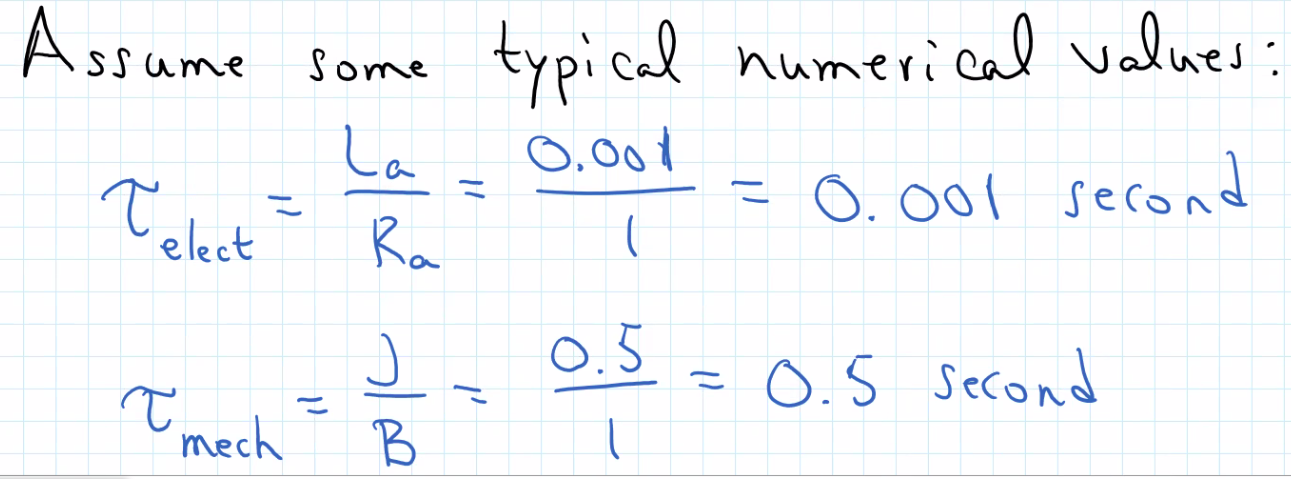 Assume some typical numerical values:
τelect = La/Ra = 0.001/1 = 0.001 second
τmech = J/B = 0.5/1 = 0.5 second